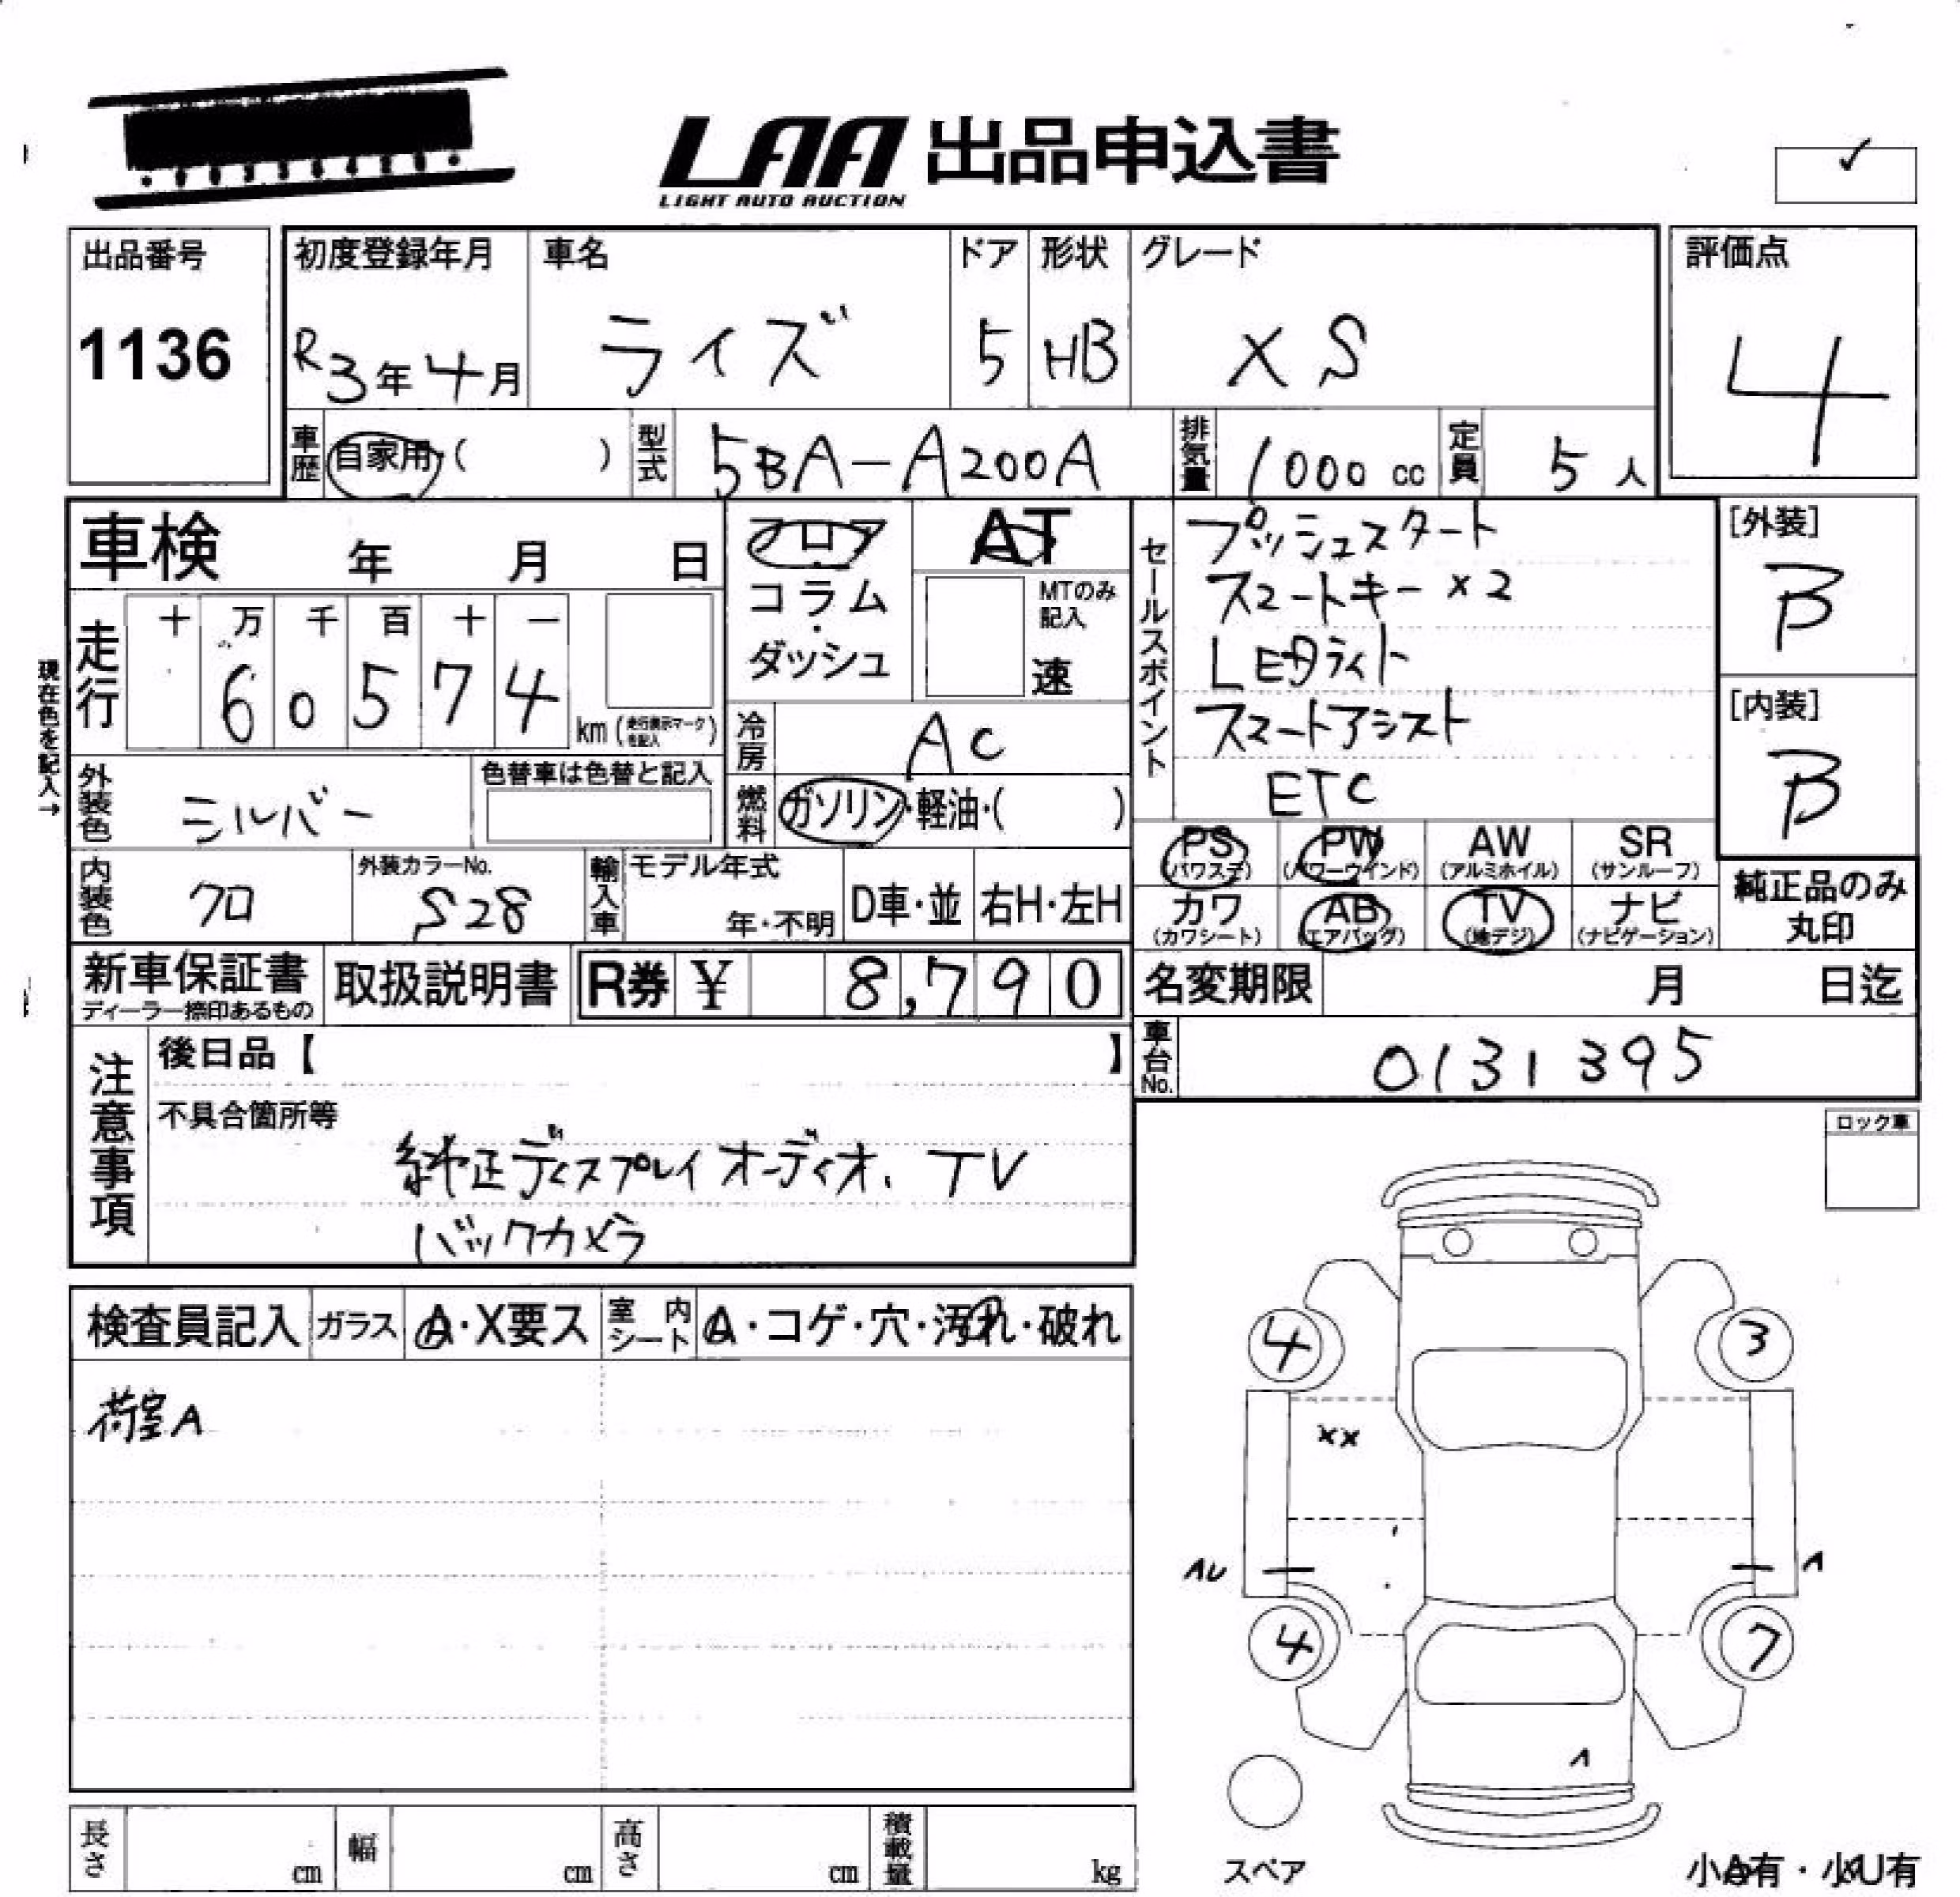 LAA 出品申込書
LIGHT AUTO AUCTION
出品番号
1136
初度登録年月
R3年4月
車名
ライズ
ドア
5
形状
HB
グレード
XS
評価点
4
車歴
自家用・( )
型式
5BA-A200A
排気量
1000 cc
定員
5 人
車検 年 月 日
現在色を記入→
走行
十 万 千 百 十 一
6 0 5 7 4
km (走行表示マークを記入)
フロア
コラム
・
ダッシュ
AT
MTのみ
記入
速
冷房
AC
燃料
ガソリン・軽油・( )
外装色
シルバー
色替車は色替と記入
内装色
クロ
外装カラーNo.
S28
輸入車
モデル年式
年・不明
D車・並
右H・左H
セールスポイント
プッシュスタート
スマートキー×2
LEDライト
スマートアシスト
ETC
[外装]
B
[内装]
B
PS
(パワステ)
PW
(パワーウインド)
AW
(アルミホイル)
SR
(サンルーフ)
カワ
(カワシート)
AB
(エアバッグ)
TV
(地デジ)
ナビ
(ナビゲーション)
純正品のみ
丸印
新車保証書
ディーラー捺印あるもの
取扱説明書
R券 ¥ 8,790
名変期限 月 日迄
車台No.
0131395
注意事項
後日品【 】
不具合箇所等
純正ディスプレイオーディオ、TV
バックカメラ
ロック車
検査員記入
ガラス
A・X要ス
室内シート
A・コゲ・穴・汚れ・破れ
荷室A
4
3
XX
AU
A
4
7
A
スペア
小A有・小U有
長さ cm
幅 cm
高さ cm
積載量 kg